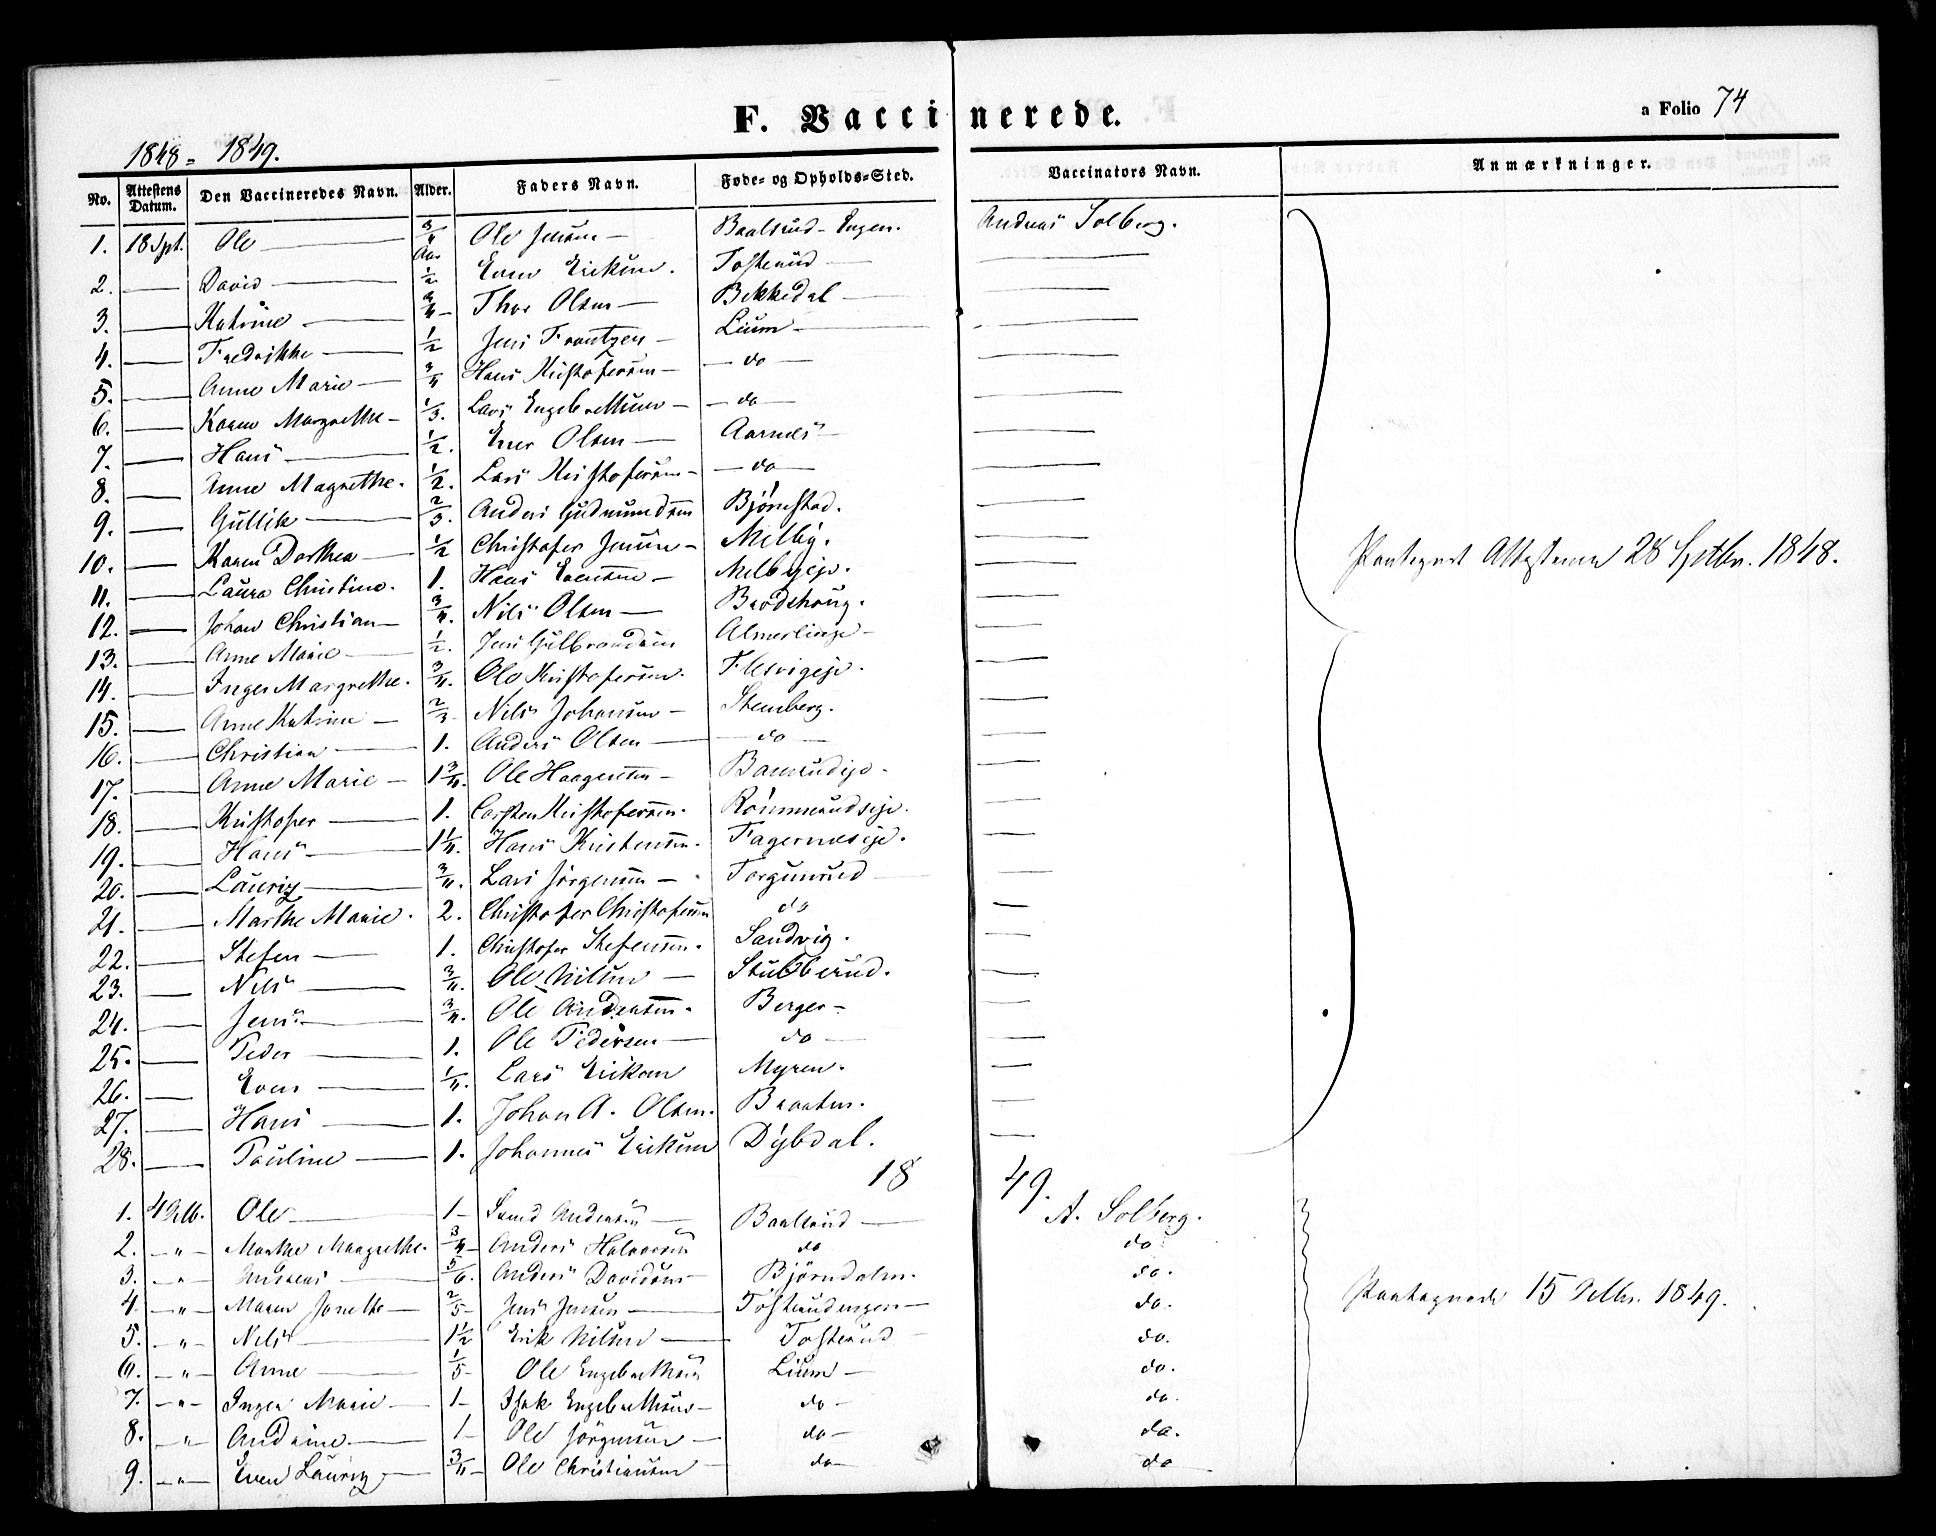 F. Vaccinerede.
a Folio 74
1848 - 1849.
No. Attestens Datum. Den Vaccineredes Navn. Alder. Faders Navn. Føde- og Opholds-Sted. Vaccinators Navn. Anmærkninger.
1. 18 Spt. Ole — 3/4 Aar Ole Jensen — Baalsrud-Engen. Andreas Solberg.
2. — David — 1/2 Even Eriksen. Tosterud —
3. — Katrine — 3/4 — Thor Olsen — Bekkedal —
4. — Fredrikke — 1/2 Jens Frantzen — Lium —
5. — Anne Marie — 3/4 Hans Kristofersen — — do —
6. — Karen Margrethe — 1/3. Lars Engebrethsen — — do —
7. — Hans — 1/2. Ener Olsen — Aarnes —
8. — Anne Magrethe. 1/2. Lars Kristofersen — — do —
9. — Gullik — 2/3. Anders Gudmundsen Bjørnstad.
10. — Karen Dorthea — 1/2 Christofer Jensen — Melby.
11. — Laura Christine. 1. Hans Evensen — Melbyeje.
12. — Johan Christian — 3/4. Nils Olsen — Brodshoug.
13. — Anne Marie — 1/2. Jens Gulbrandsen Almerlinge —
14. — Inger Margrethe. 3/4. Ole Kristofersen. Flesvigeje.
15. — Anne Katrine — 2/3 — Nils Johansen — Stenberg.
16. — Christian — 1. Anders Olsen — — do —
17. — Anne Marie — 1 3/4. Ole Haagensen — Bamrudeje.
18. — Kristofer — 1. Carsten Kristofersen. Rømmerudseje.
19. — Hans — 1 1/4. Hans Kristensen. Fagerneseje.
20. — Lauriz — 3/4. Lars Jørgensen — Torgunrud —
21. — Marthe Marie. 2. Christofer Christofersen do
22. — Stefen — 1. Christofer Stefensen. Sandvig.
23. — Nils — 3/4. Ole Nilsen — Stubberud.
24. — Jens — 3/4. Ole Andersen. Berger —
25. — Peder — 1. Ole Pedersen — do —
26. — Even — 1/4. Lars Eriksen Myren.
27. — Hans — 1. Johan A. Olsen. Braaten.
28. — Pauline — 1. Johannes Eriksen Dybdal.
Protegnet Attesterne 28 Septbr. 1848.
1849.
1. 4 Ole — 1 — Andersen — Baalsrud — A. Solberg.
2. — " — Marthe Maagrethe. 3/4 — Anders Halvorsen do do
3. — " 5/6. Anders Davidsen — Bjørndalen. do.
4. — " — Maren Janethe — 2/5 — Jens Jensen — Tosterudengen — do.
5. — " — Nils — 1 1/2 Erik Nilsen — Tosterud — do.
6. — " — Anne — 1/5 — Ole Engebrethsen Lium — do.
7. — " — Inger Marie — 1 — Isak Engebrethsen — do — do.
8. — " Andrine. — 1 — Ole Jørgensen — do — do.
9. — " — Even Lauriz — 3/4 — Ole Christiansen — do — do
15 1849.